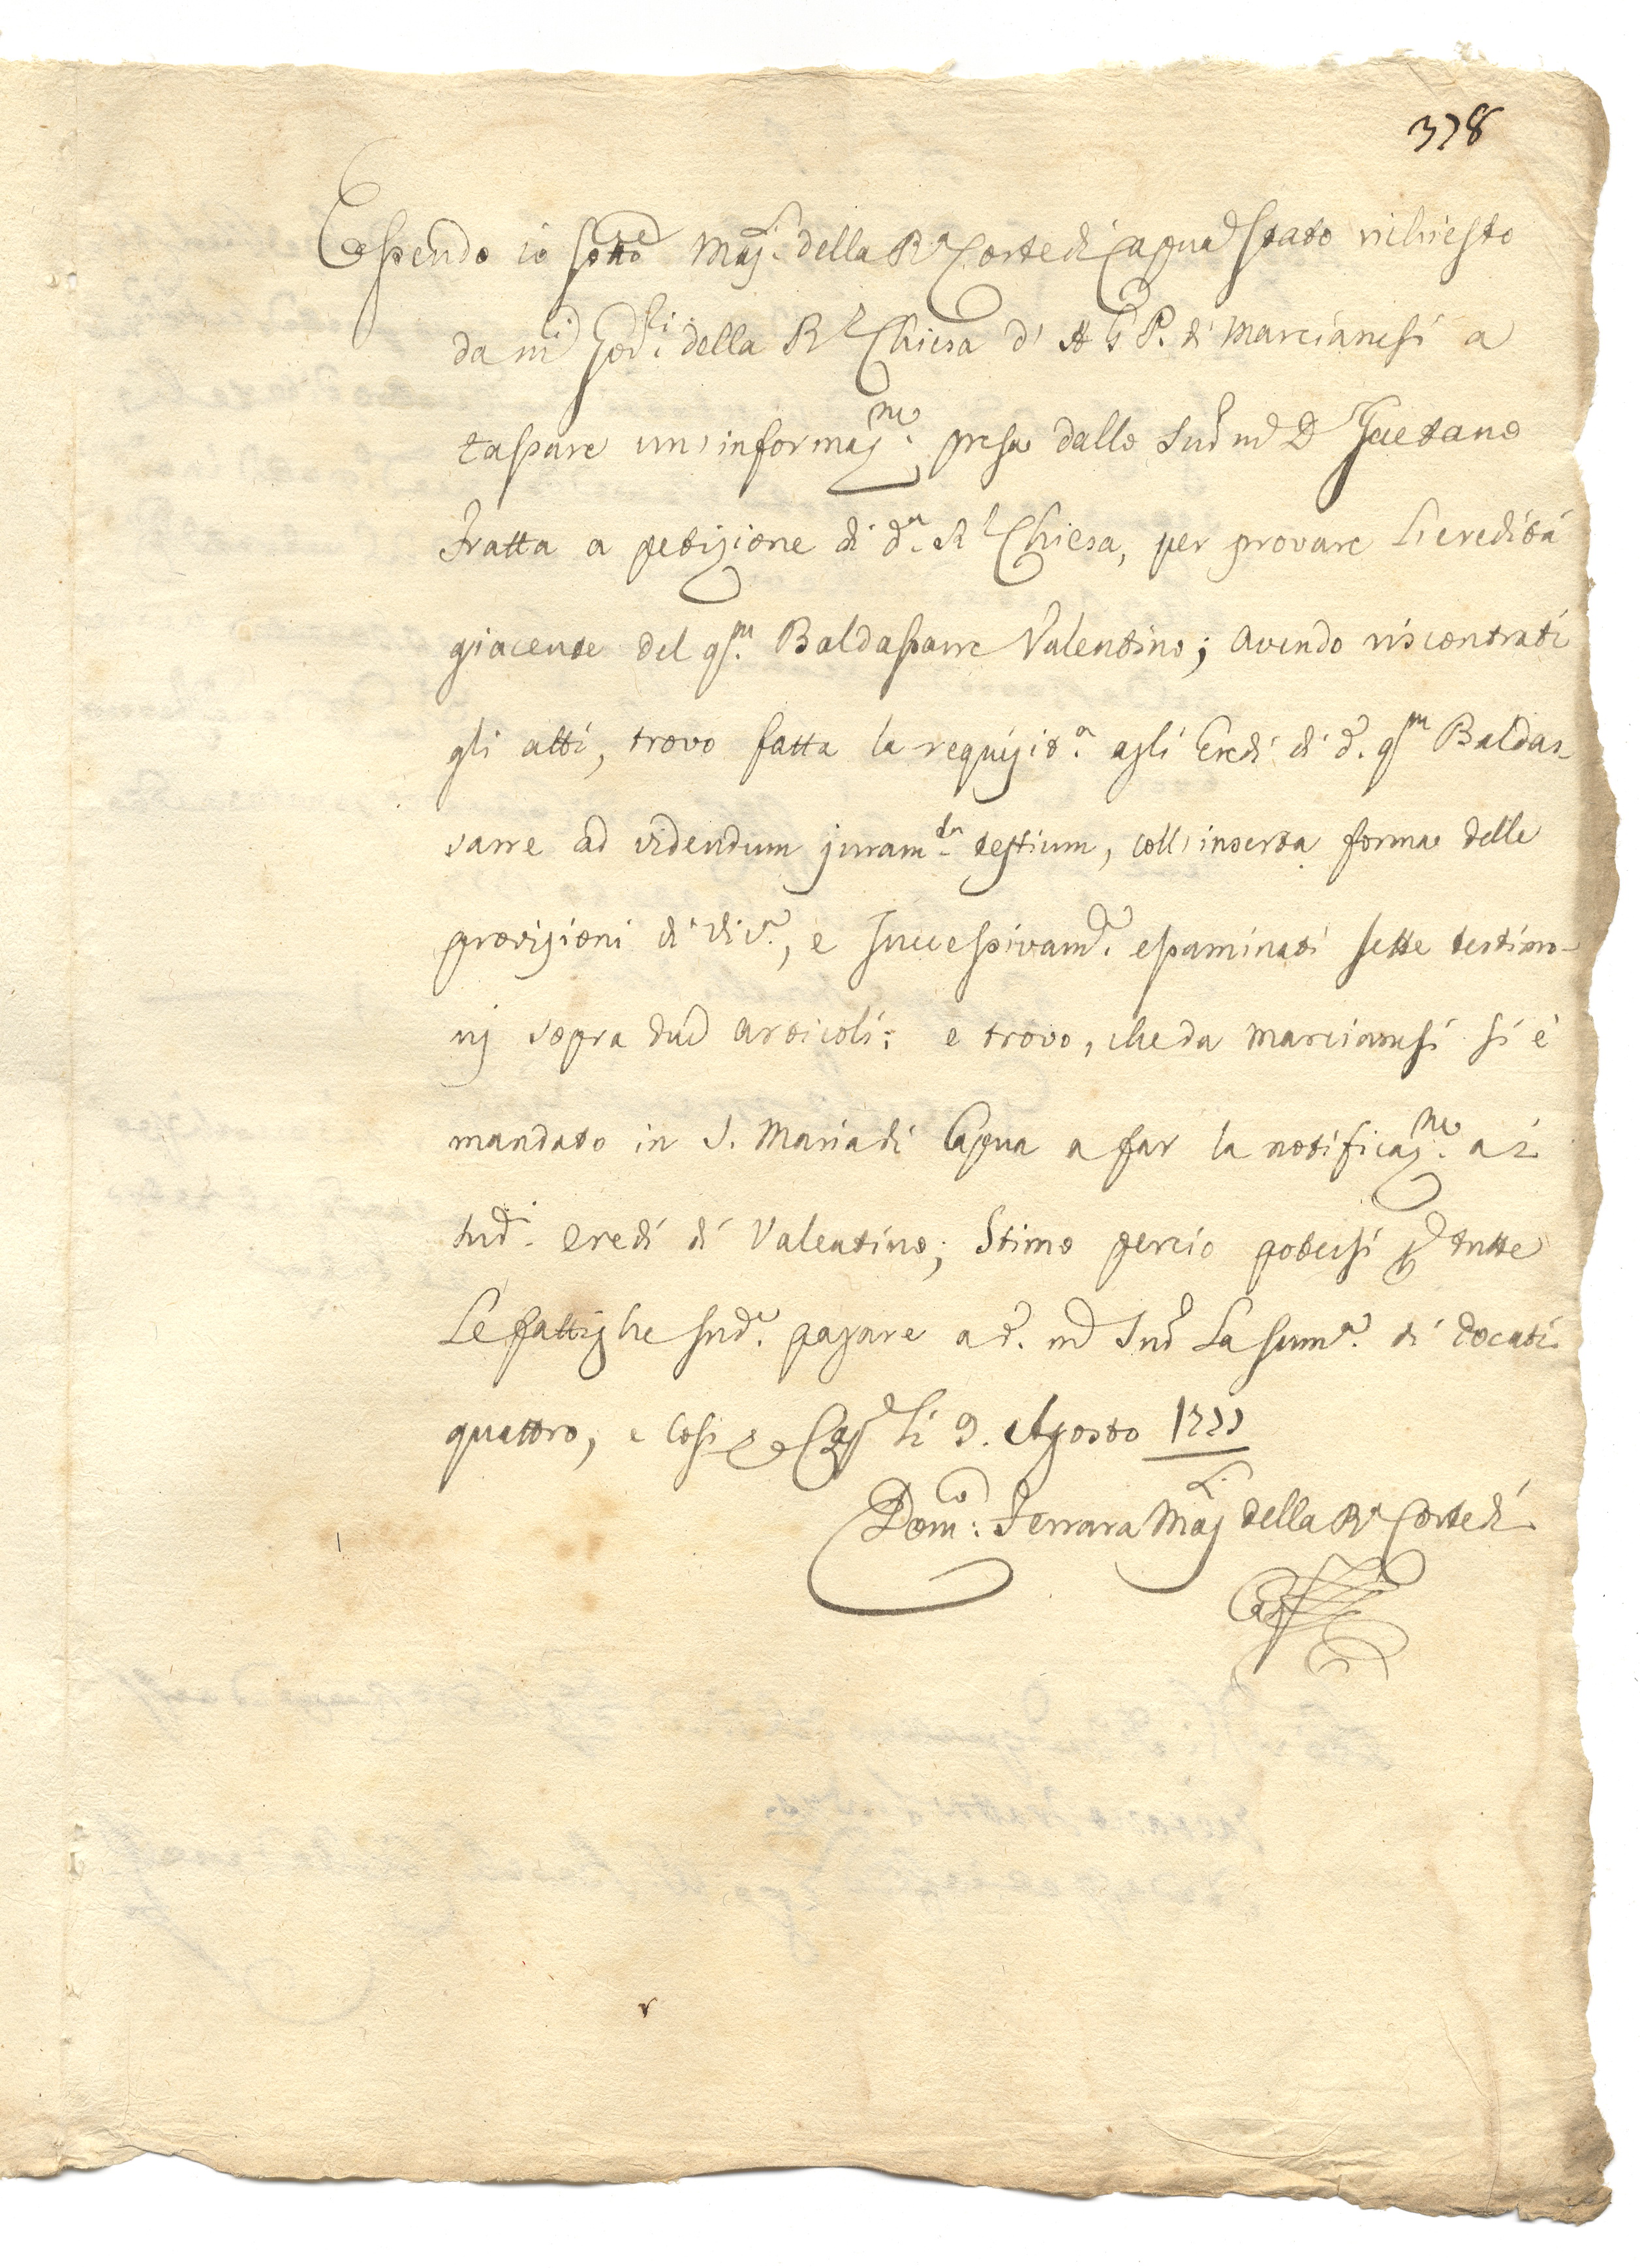 378
Essendo io sotto Maj. della R.ª Corte di Capua stato richiesto
da m.ci Gov.ri della R.l Chiesa d' A. G. P. di Marcianesi a
tassare un'informaz.ne presa dallo Sud.o m.co D. Gaetano
Fratta a petizione di d.ª R.l Chiesa, per provare l'eredità
giacente del q.m Baldassarre Valentino; avendo riscontrati
gli atti, trovo fatta la requisit.ª agli Eredi di d. q.m Baldas-
sarre ad videndum juram.ta testium, coll'inserta forma delle
provisioni di Vic.ª, e successivam.e essaminati sette testimo-
nj sopra due articoli; e trovo, che da Marcianesi si è
mandato in S. Maria di Capua a far la notificaz.ne a i
sud.i eredi di Valentino; Stimo perciò potersi p tutte
Le fattighe sud.e pagare a d. m.co Sud.o La summ.ª di docati
quattro, e così Cap.a li 9. Agosto
Dom.co Ferrara Maj. della R.ª Corte di
Cap.